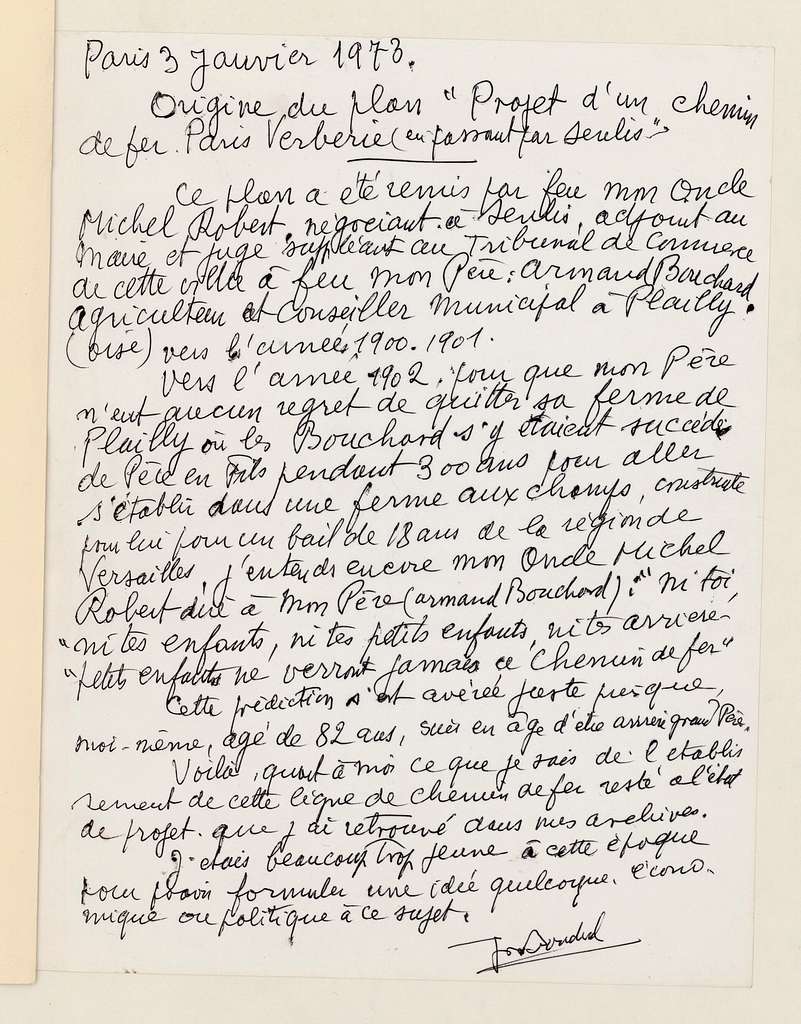 Paris 3 Janvier 1973.
Origine du plan " Projet d'un chemin
de fer Paris Verberie (en passant par Senlis "
Ce plan a été remis par feu mon Oncle
Michel Robert, négociant à Senlis, adjoint au
Maire et Juge suppléant au Tribunal de Commerce
de cette ville à feu mon Père : Armand Bouchard
agriculteur et Conseiller Municipal à Plailly.
(Oise) vers l'année 1900. 1901.
Vers l'année 1902, pour que mon Père
n'eut aucun regret de quitter sa ferme de
Plailly où les Bouchard s'y étaient succédés
de Père en Fils pendant 300 ans pour aller
s'établir dans une ferme aux champs, construite
pour lui pour un bail de 18 ans de la région de
Versailles, j'entends encore mon Oncle Michel
Robert dire à Mon Père (Armand Bouchard) : " ni toi,
" ni tes enfants, ni tes petits enfants, ni tes arrière-
" petits enfants ne verront jamais ce Chemin de fer "
Cette prédiction s'est avérée juste puisque,
moi-même, âgé de 82 ans, suis en âge d'être arrière grand Père.
Voilà, quant à moi ce que je sais de l'établis
sement de cette ligne de chemin de fer resté à l'état
de projet. que j'ai retrouvé dans mes archives.
J'étais beaucoup Trop jeune à cette époque
pour pouvoir formuler une idée quelconque. écono-
mique ou politique à ce sujet.